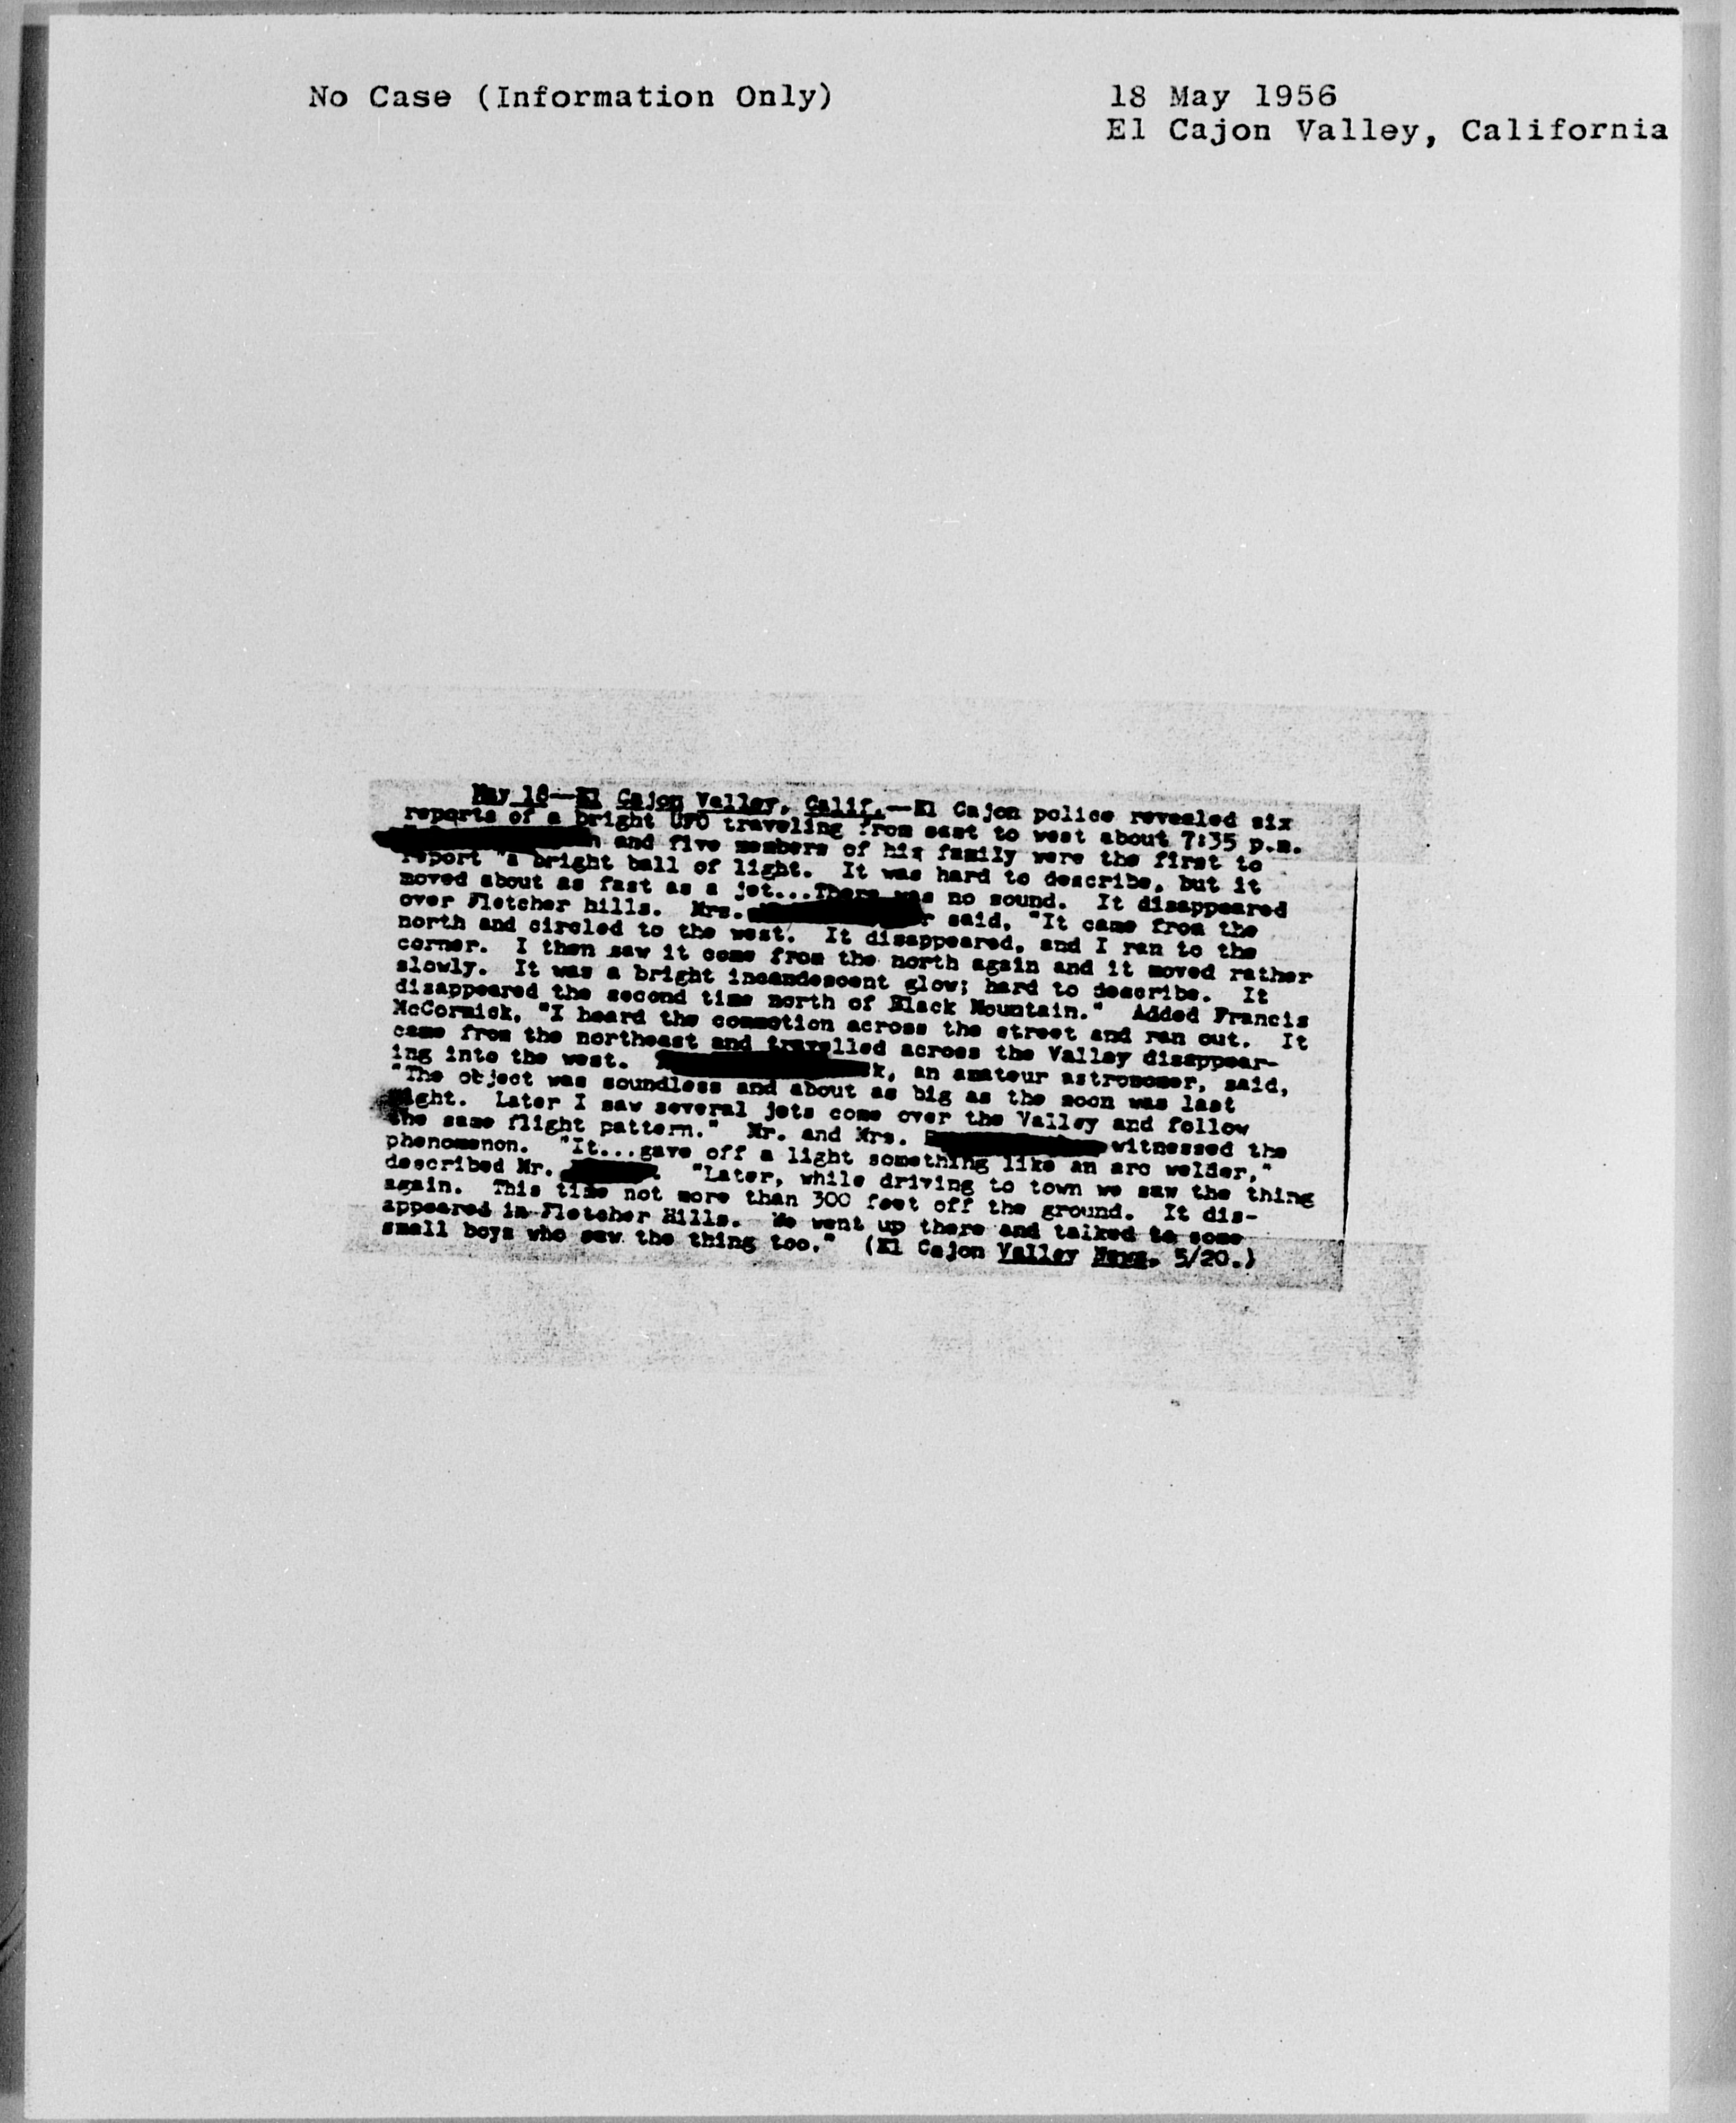 No Case (Information Only)
18 May 1956
El Cajon Valley, California
May 18—El Cajon Valley, Calif.—El Cajon police revealed six
reports of a bright UFO traveling from east to west about 7:35 p.m.
n and five members of his family were the first to
report "a bright ball of light. It was hard to describe, but it
moved about as fast as a jet...There was no sound. It disappeared
over Fletcher hills. Mrs. r said, "It came from the
north and circled to the west. It disappeared, and I ran to the
corner. I then saw it come from the north again and it moved rather
slowly. It was a bright incandescent glow; hard to describe. It
disappeared the second time north of Black Mountain." Added Francis
McCormick, "I heard the commotion across the street and ran out. It
came from the northeast and travelled across the Valley disappear-
ing into the west. k, an amateur astronomer, said,
"The object was soundless and about as big as the moon was last
night. Later I saw several jets come over the Valley and follow
the same flight pattern." Mr. and Mrs. witnessed the
phenomenon. "It...gave off a light something like an arc welder,"
described Mr. . "Later, while driving to town we saw the thing
again. This time not more than 300 feet off the ground. It dis-
appeared in Fletcher Hills. We went up there and talked to some
small boys who saw the thing too." (El Cajon Valley News, 5/20.)